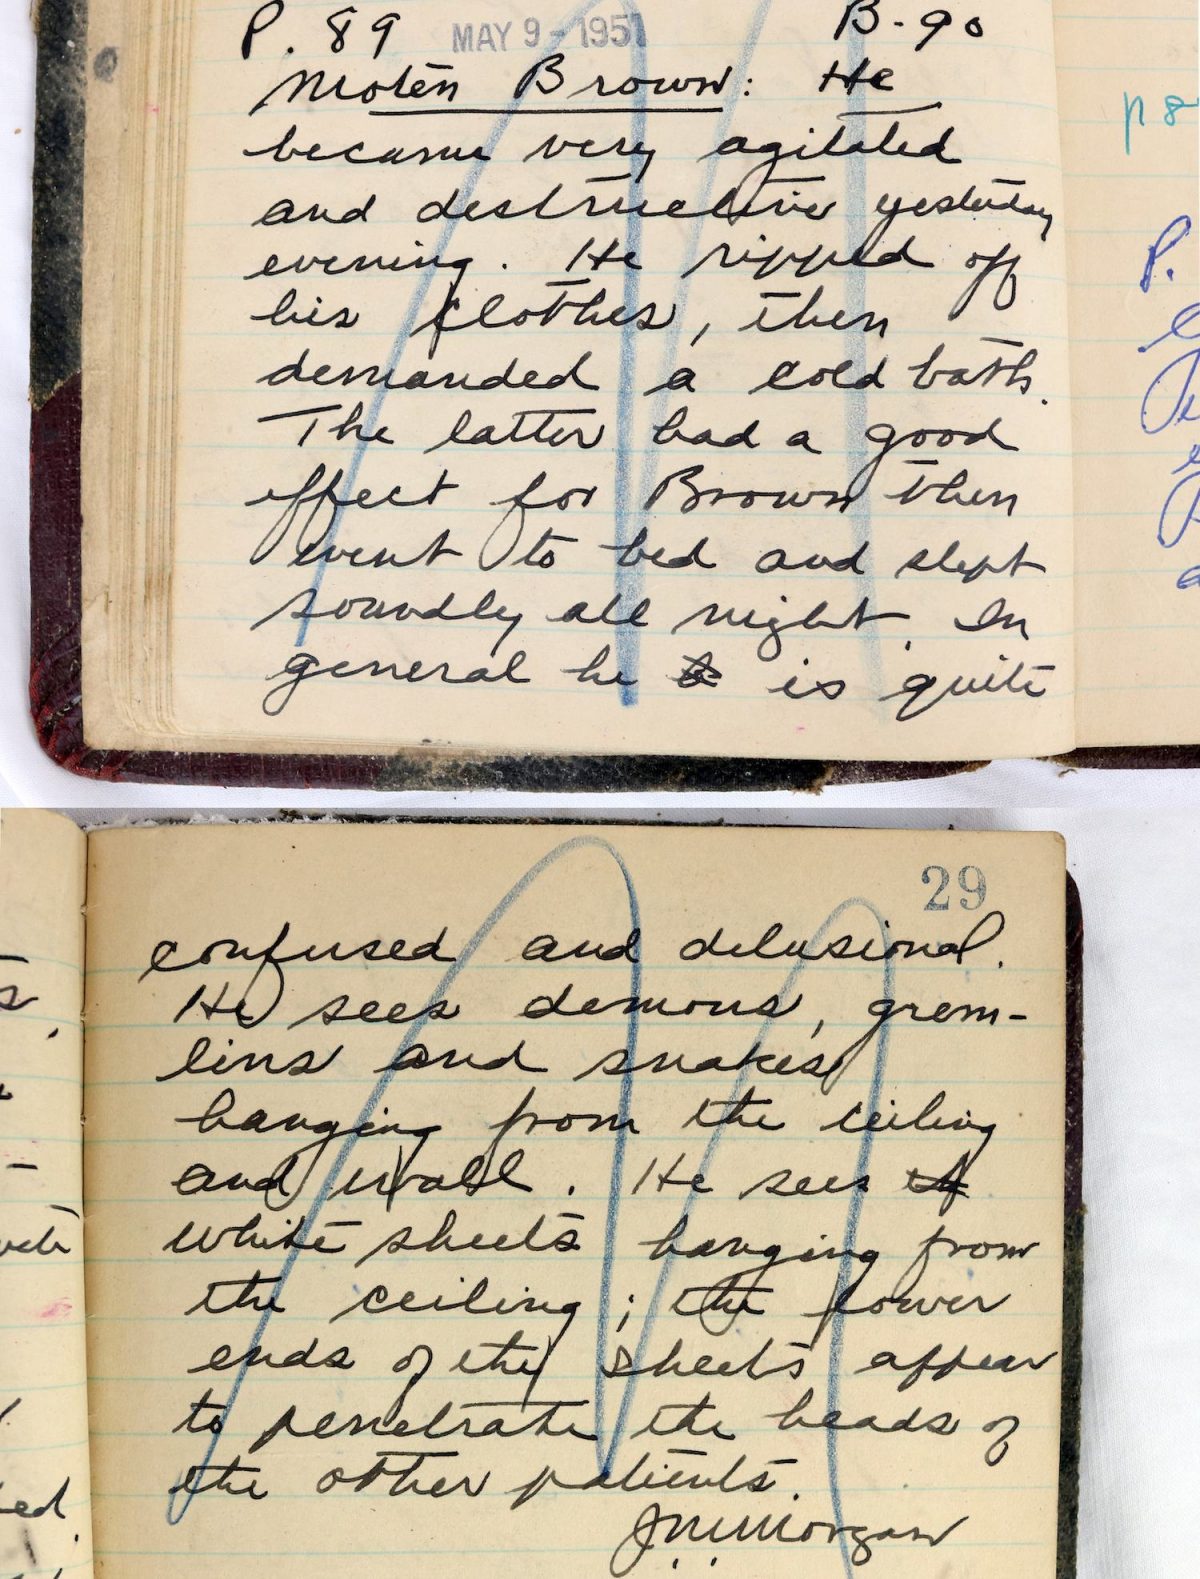 P. 89 MAY 9 - 1951 B-90
Moten Brown: He
became very agitated
and destructive yesterday
evening. He ripped off
his clothes, then
demanded a cold bath.
The latter had a good
effect for Brown then
went to bed and slept
soundly all night. In
general he is quite
p 8
P.
29
confused and delusional.
He sees demons, grem-
lins and snakes
hanging from the ceiling
and wall. He sees
white sheets hanging from
the ceiling; the lower
ends of the sheets appear
to penetrate the heads of
the other patients.
JMMorgan